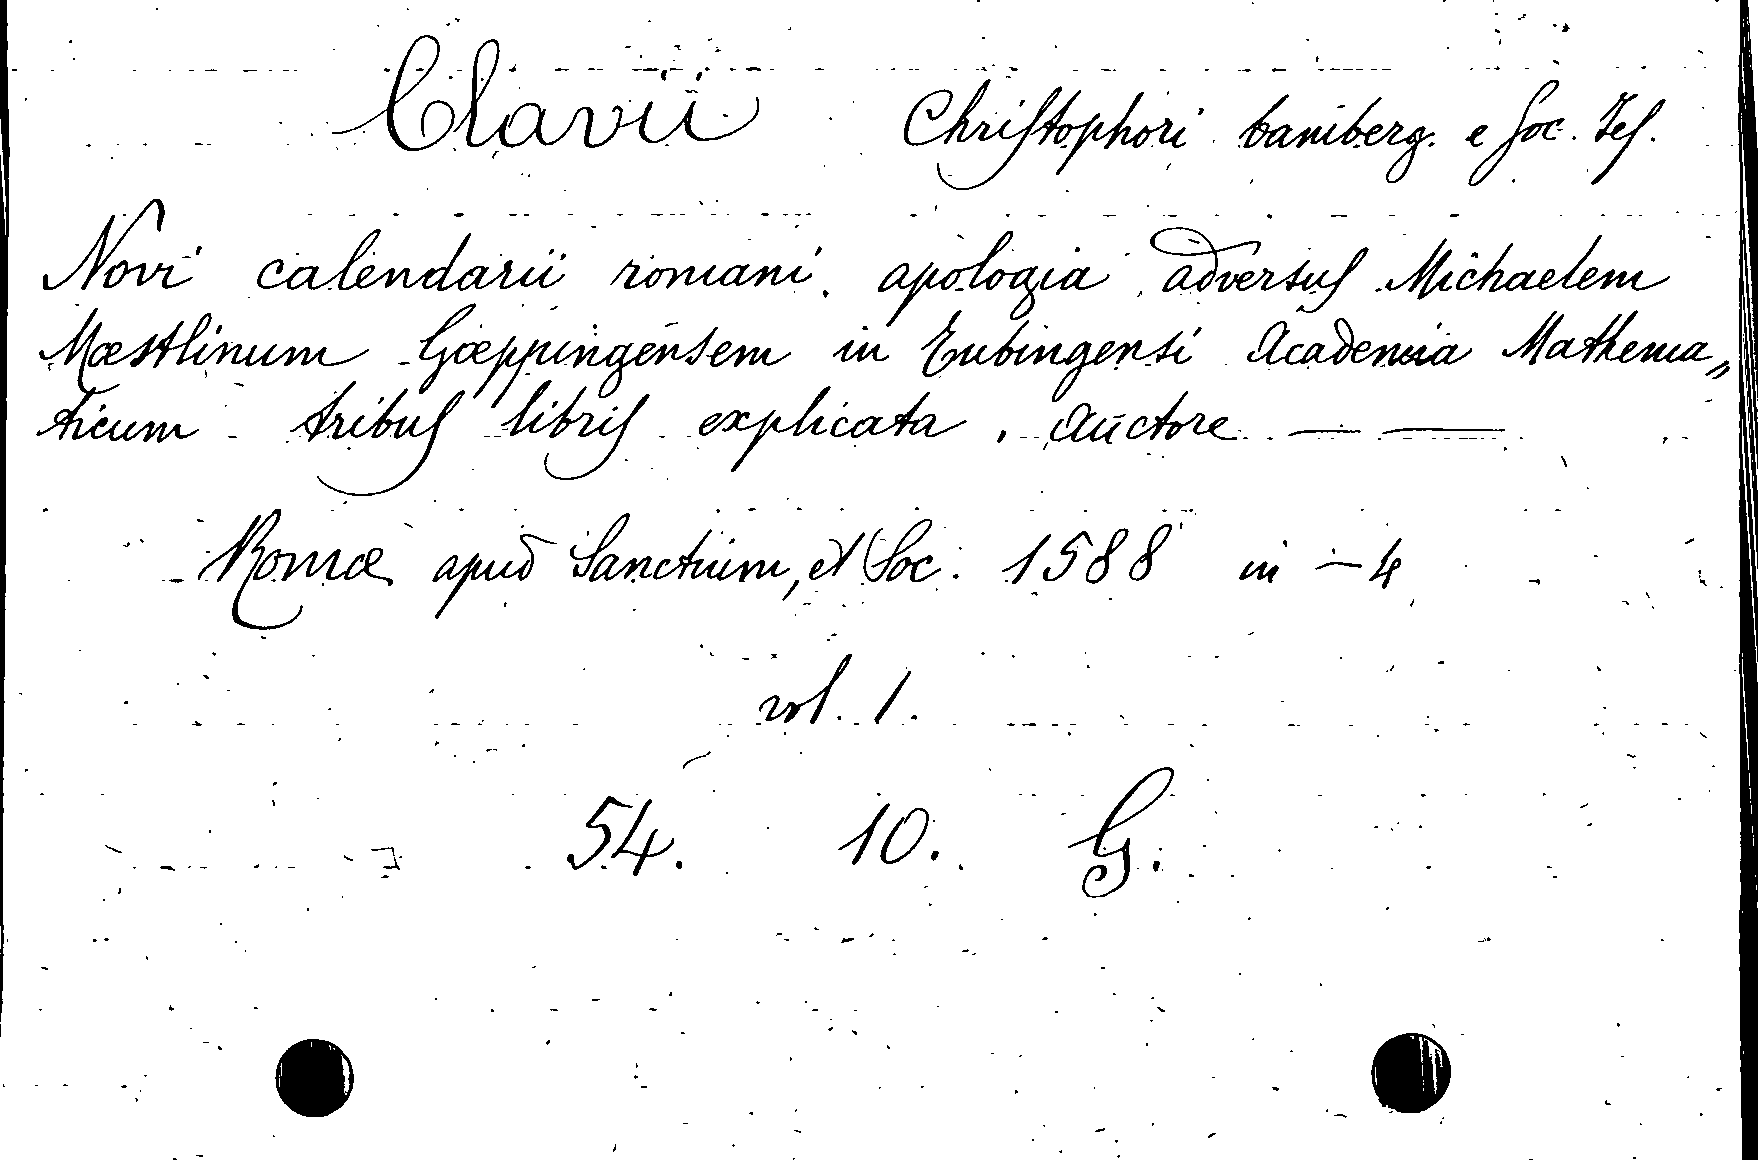 Clavii Christophori bamberg. e Soc. Jes.
Novi calendarii romani apologia adversus Michaelem
Mæstlinum Gœppingensem in Tubingensi Academia Mathema„
ticum tribus libris explicata. Auctore — —
Romæ apud Sanctium, et Soc. 1588 in - 4
vol. 1.
54. 10. G.